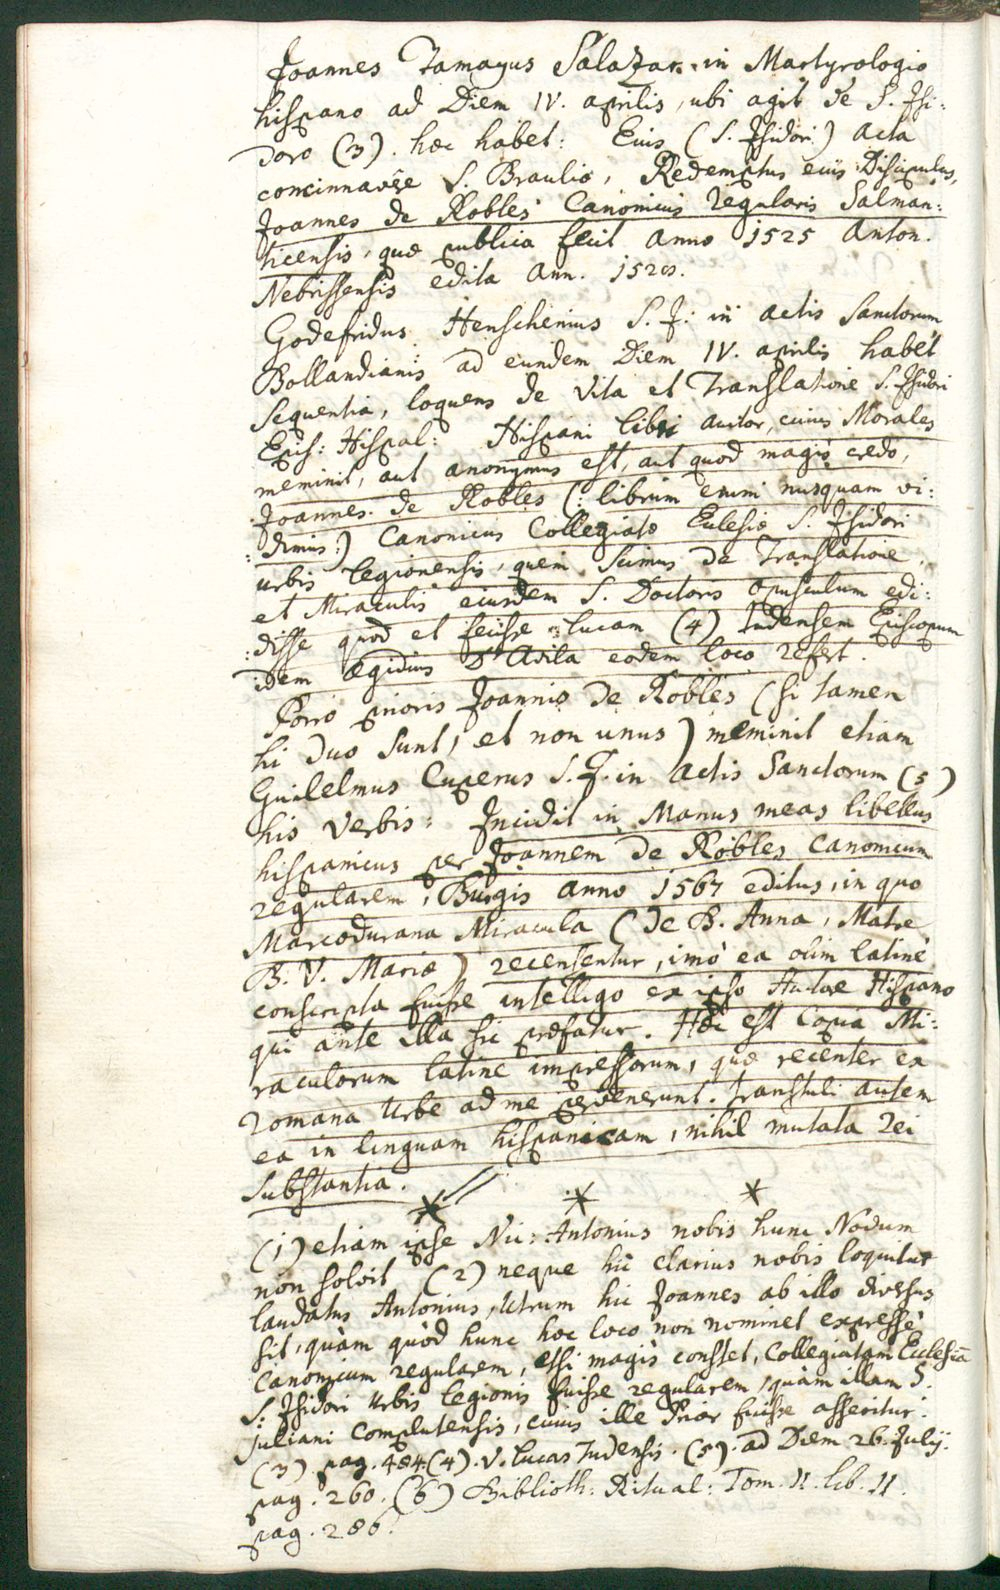 Joannes Tamayus Salazar in Martyrologio
hispano ad Diem IV. aprilis, ubi agit de S. Isi:
doro (3). hæc habet: Eius (S. Isidori) acta
concinnavêre S. Braulio, Redemptus eius Discipulus,
Joannes de Robles Canonicus regularis Salman:
ticensis, quæ publica fecit anno 1525 Anton.
Nebrissensis edita ann. 1520.
Godefridus Henschenius S. J. in actis Sanctorum
Bollandianis ad eundem Diem IV. aprilis habet
sequentia, loquens de Vita et Translatione S. Isidori
Epis: Hispal: Hispani libri auctor, cuius Morales
meminit, aut anonymus est, aut quod magis credo,
Joannes de Robles (: librum enim nusquam vi:
:dimus:) Canonicus Collegiatæ Eclesiæ S. Isidori
urbis legionensis, quem scimus de Translatione,
et Miraculis eiusdem S. Doctoris opusculum edi:
:disse quod et fecisse Lucam (4) tudensem Episcopum
idem Ægidius D'Avila eodem loco refert.
Porro prioris Joannis de Robles (si tamen
hi duo sunt, et non unus) meminit etiam
Guilelmus Cuperus S. J. in Actis Sanctorum (5)
his verbis: Incidit in Manus meas libellus
hispanicus per Joannem de Robles Canonicum
regularem, Burgis anno 1567 editus, in quo
Marcodurana Miracula (de B. Anna, Matre
B. V. Mariæ) recensentur, imò ea olim latinè
conscripta fuisse intelligo ex ipso Autore Hispano
qui ante illa sic præfatur. Hæc est Copia Mi:
raculorum latine impressorum, quæ recenter ex
romana Urbe ad me pervenerunt. transtuli autem
ea in linguam hispanicam, nihil mutata rei
substantia.
* * *
(1) etiam ipse Nic: Antonius nobis hunc Nodum
non solvit (2) neque hic clarius nobis loquitur
laudatus Antonius, Utrum hic Joannes ab illo diversus
sit, quàm quòd hunc hoc loco non nominet expressè
Canonicum regularem, etsi magis constet, Collegiatam Ecclesiã
S. Isidori Urbis legionis fuisse regularem, quàm illam S.
Juliani Complutensis, cuius ille Prior fuisse asseritur.
(3) pag. 484. (4). V. Lucas Tudensis. (5). ad Diem 26. Julij.
pag. 260. (6) Biblioth: Ritual: Tom. II. lib. II.
pag. 286.